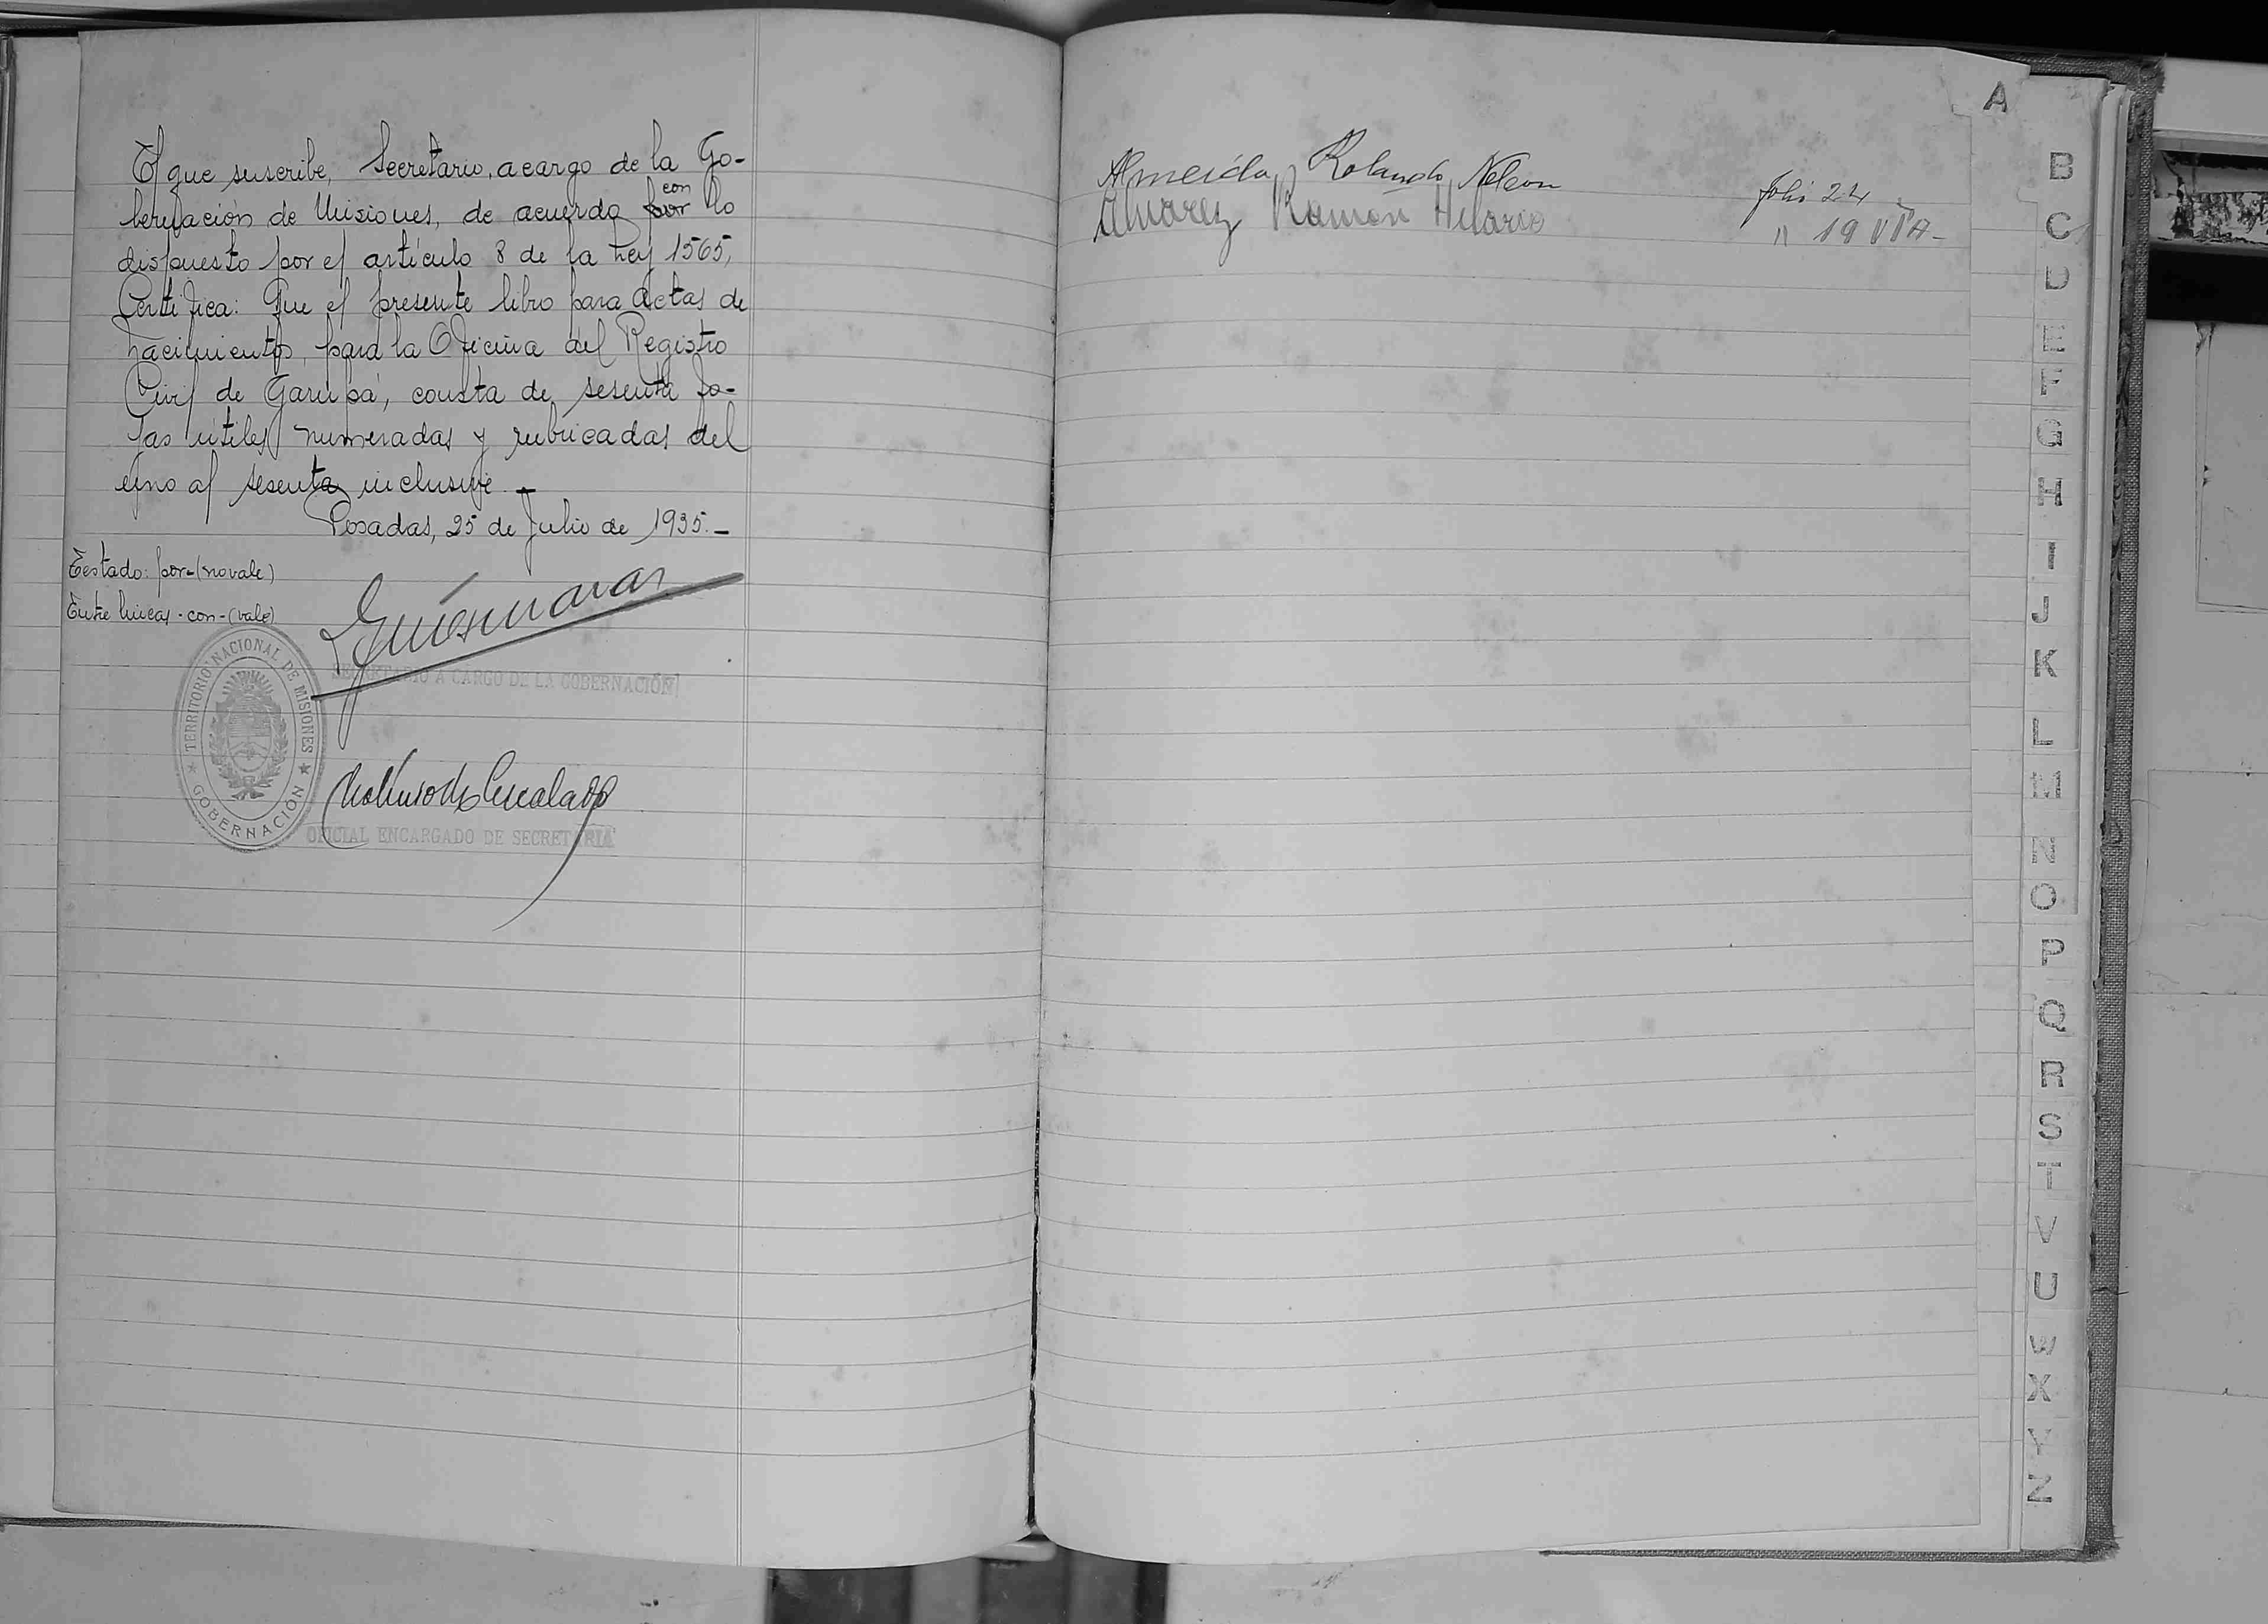 El que suscribe, Secretario, a cargo de la Go-
bernación de Misiones, de acuerdo por con lo
dispuesto por el artículo 8 de la Ley 1565,
Certifica: Que el presente libro para Actas de
nacimientos, para la Oficina del Registro
Civil de Garupá, consta de sesenta fo-
jas útiles numeradas y rubricadas del
uno al sesenta inclusive.-
Posadas, 25 de Julio de 1935.-
Testado: por-(no vale)
Entre lineas-con-(vale)
TERRITORIO NACIONAL DE MISIONES
GOBERNACIÓN
SECRETARIO A CARGO DE LA GOBERNACIÓN
OFICIAL ENCARGADO DE SECRETARIA
Almeida, Rolando Nelson folio 24
Alvarez Ramón Hilario " 19 VTA-
A
B
C
D
E
F
G
H
I
J
K
L
M
N
O
P
Q
R
S
T
V
U
W
X
Y
Z